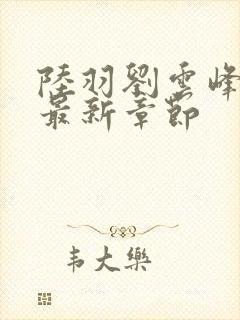 陸羽劉雲峰
最新章節
韦大樂